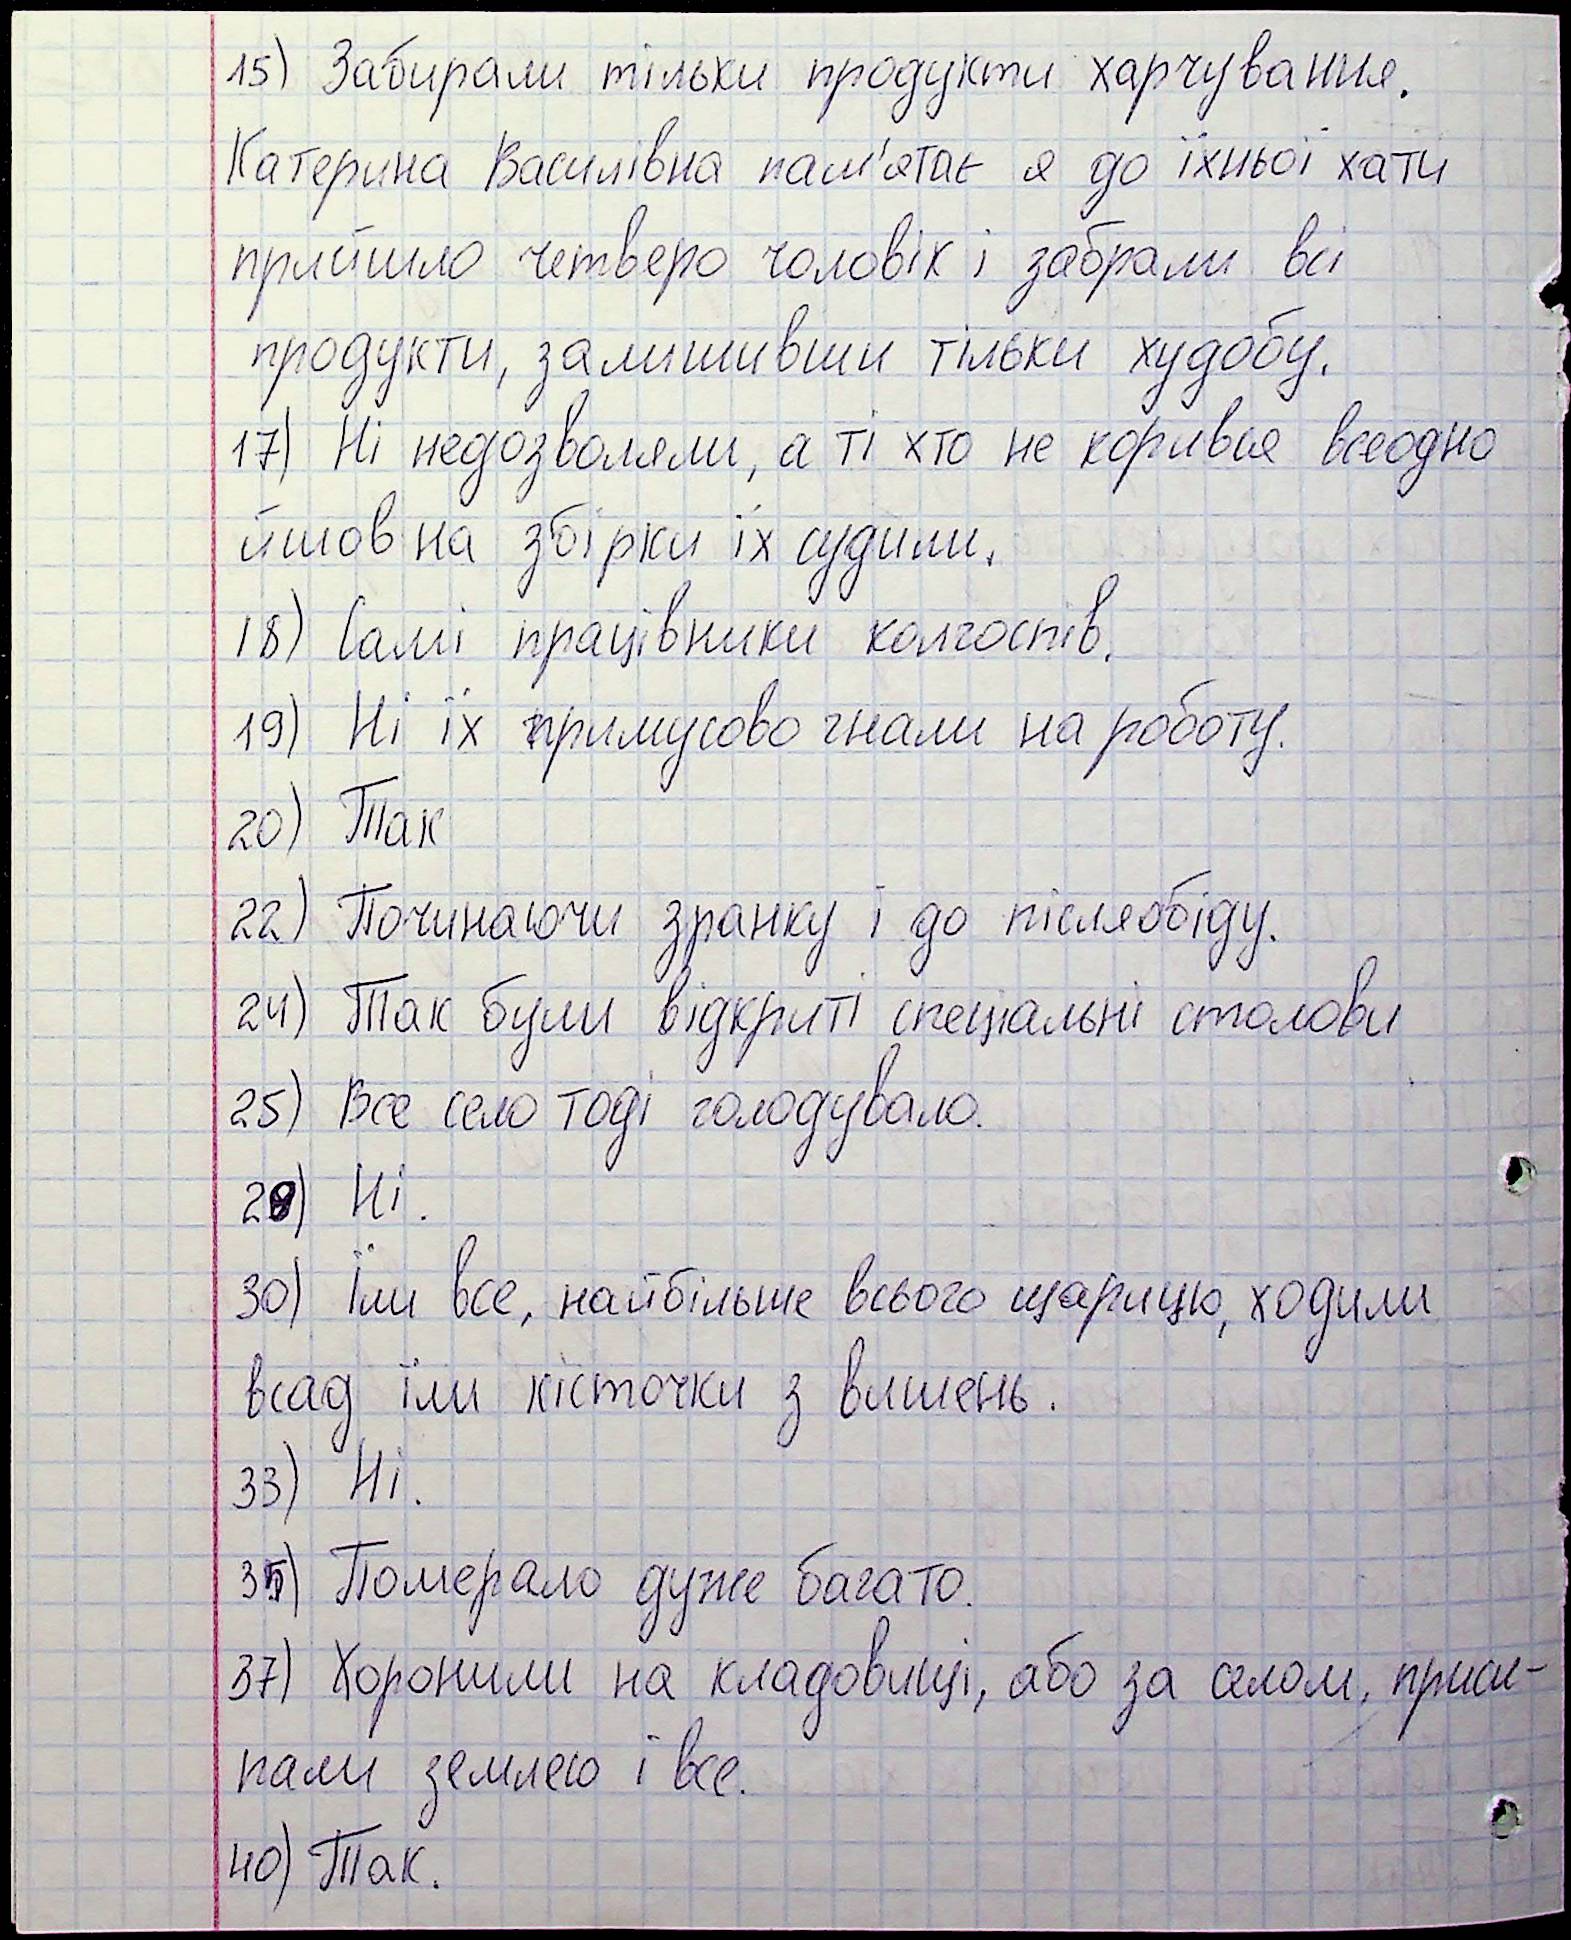 15) Забирали тільки продукти харчування.
Катерина Василівна пам'ятає я до їхньої хати
прийшло четверо чоловік і забрали всі
продукти, залишивши тільки худобу.
17) Ні недозволяли, а ті хто не корився всеодно
йшов на збірки їх судили.
18) Самі працівники колгоспів.
19) Ні їх примусово гнали на роботу.
20) Так
22) Починаючи зранку і до післяобіду.
24) Так були відкриті спеціальні столови
25) Все село тоді голодувало.
29) Ні.
30) Їли все, найбільше всього щарицю, ходили
всад їли кісточки з вишень.
33) Ні.
35) Померало дуже багато.
37) Хоронили на кладовищі, або за селом, приси-
пали землею і все.
40) Так.